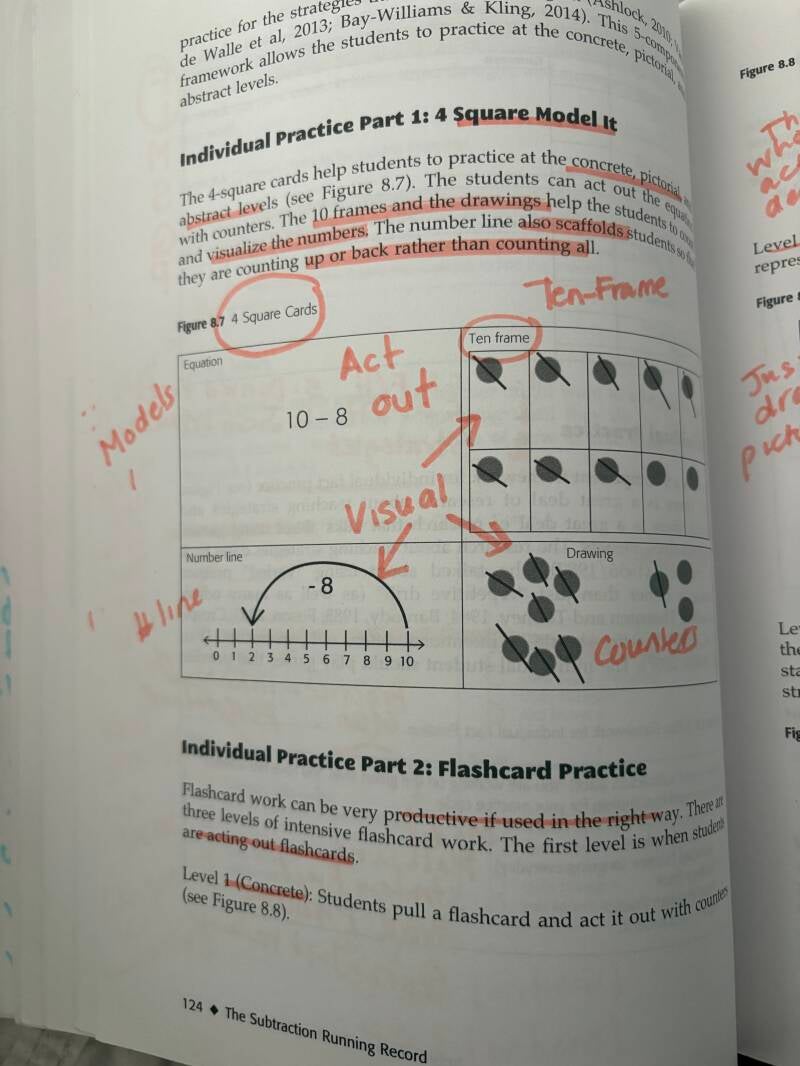 (Ashlock, 2010;
practice for the strategies
de Walle et al, 2013; Bay-Williams & Kling, 2014). This
framework allows the students to practice at the concrete, pictorial,
abstract levels.
Individual Practice Part 1: 4 Square Model It
The 4-square cards help students to practice at the concrete, pictorial,
abstract levels (see Figure 8.7). The students can act out the
with counters. The 10 frames and the drawings help the students to
and visualize the numbers. The number line also scaffolds students so
they are counting up or back rather than counting all.
Figure 8.7 4 Square Cards
Ten-Frame
Equation
Act
out
10 – 8
Ten frame
Models
Visual
Number line
- 8
0 1 2 3 4 5 6 7 8 9 10
# line
Drawing
Counters
Individual Practice Part 2: Flashcard Practice
Flashcard work can be very productive if used in the right way. There are
three levels of intensive flashcard work. The first level is when students
are acting out flashcards.
Level 1 (Concrete): Students pull a flashcard and act it out with counters
(see Figure 8.8).
124 ◆ The Subtraction Running Record
Figure 8.8
Level